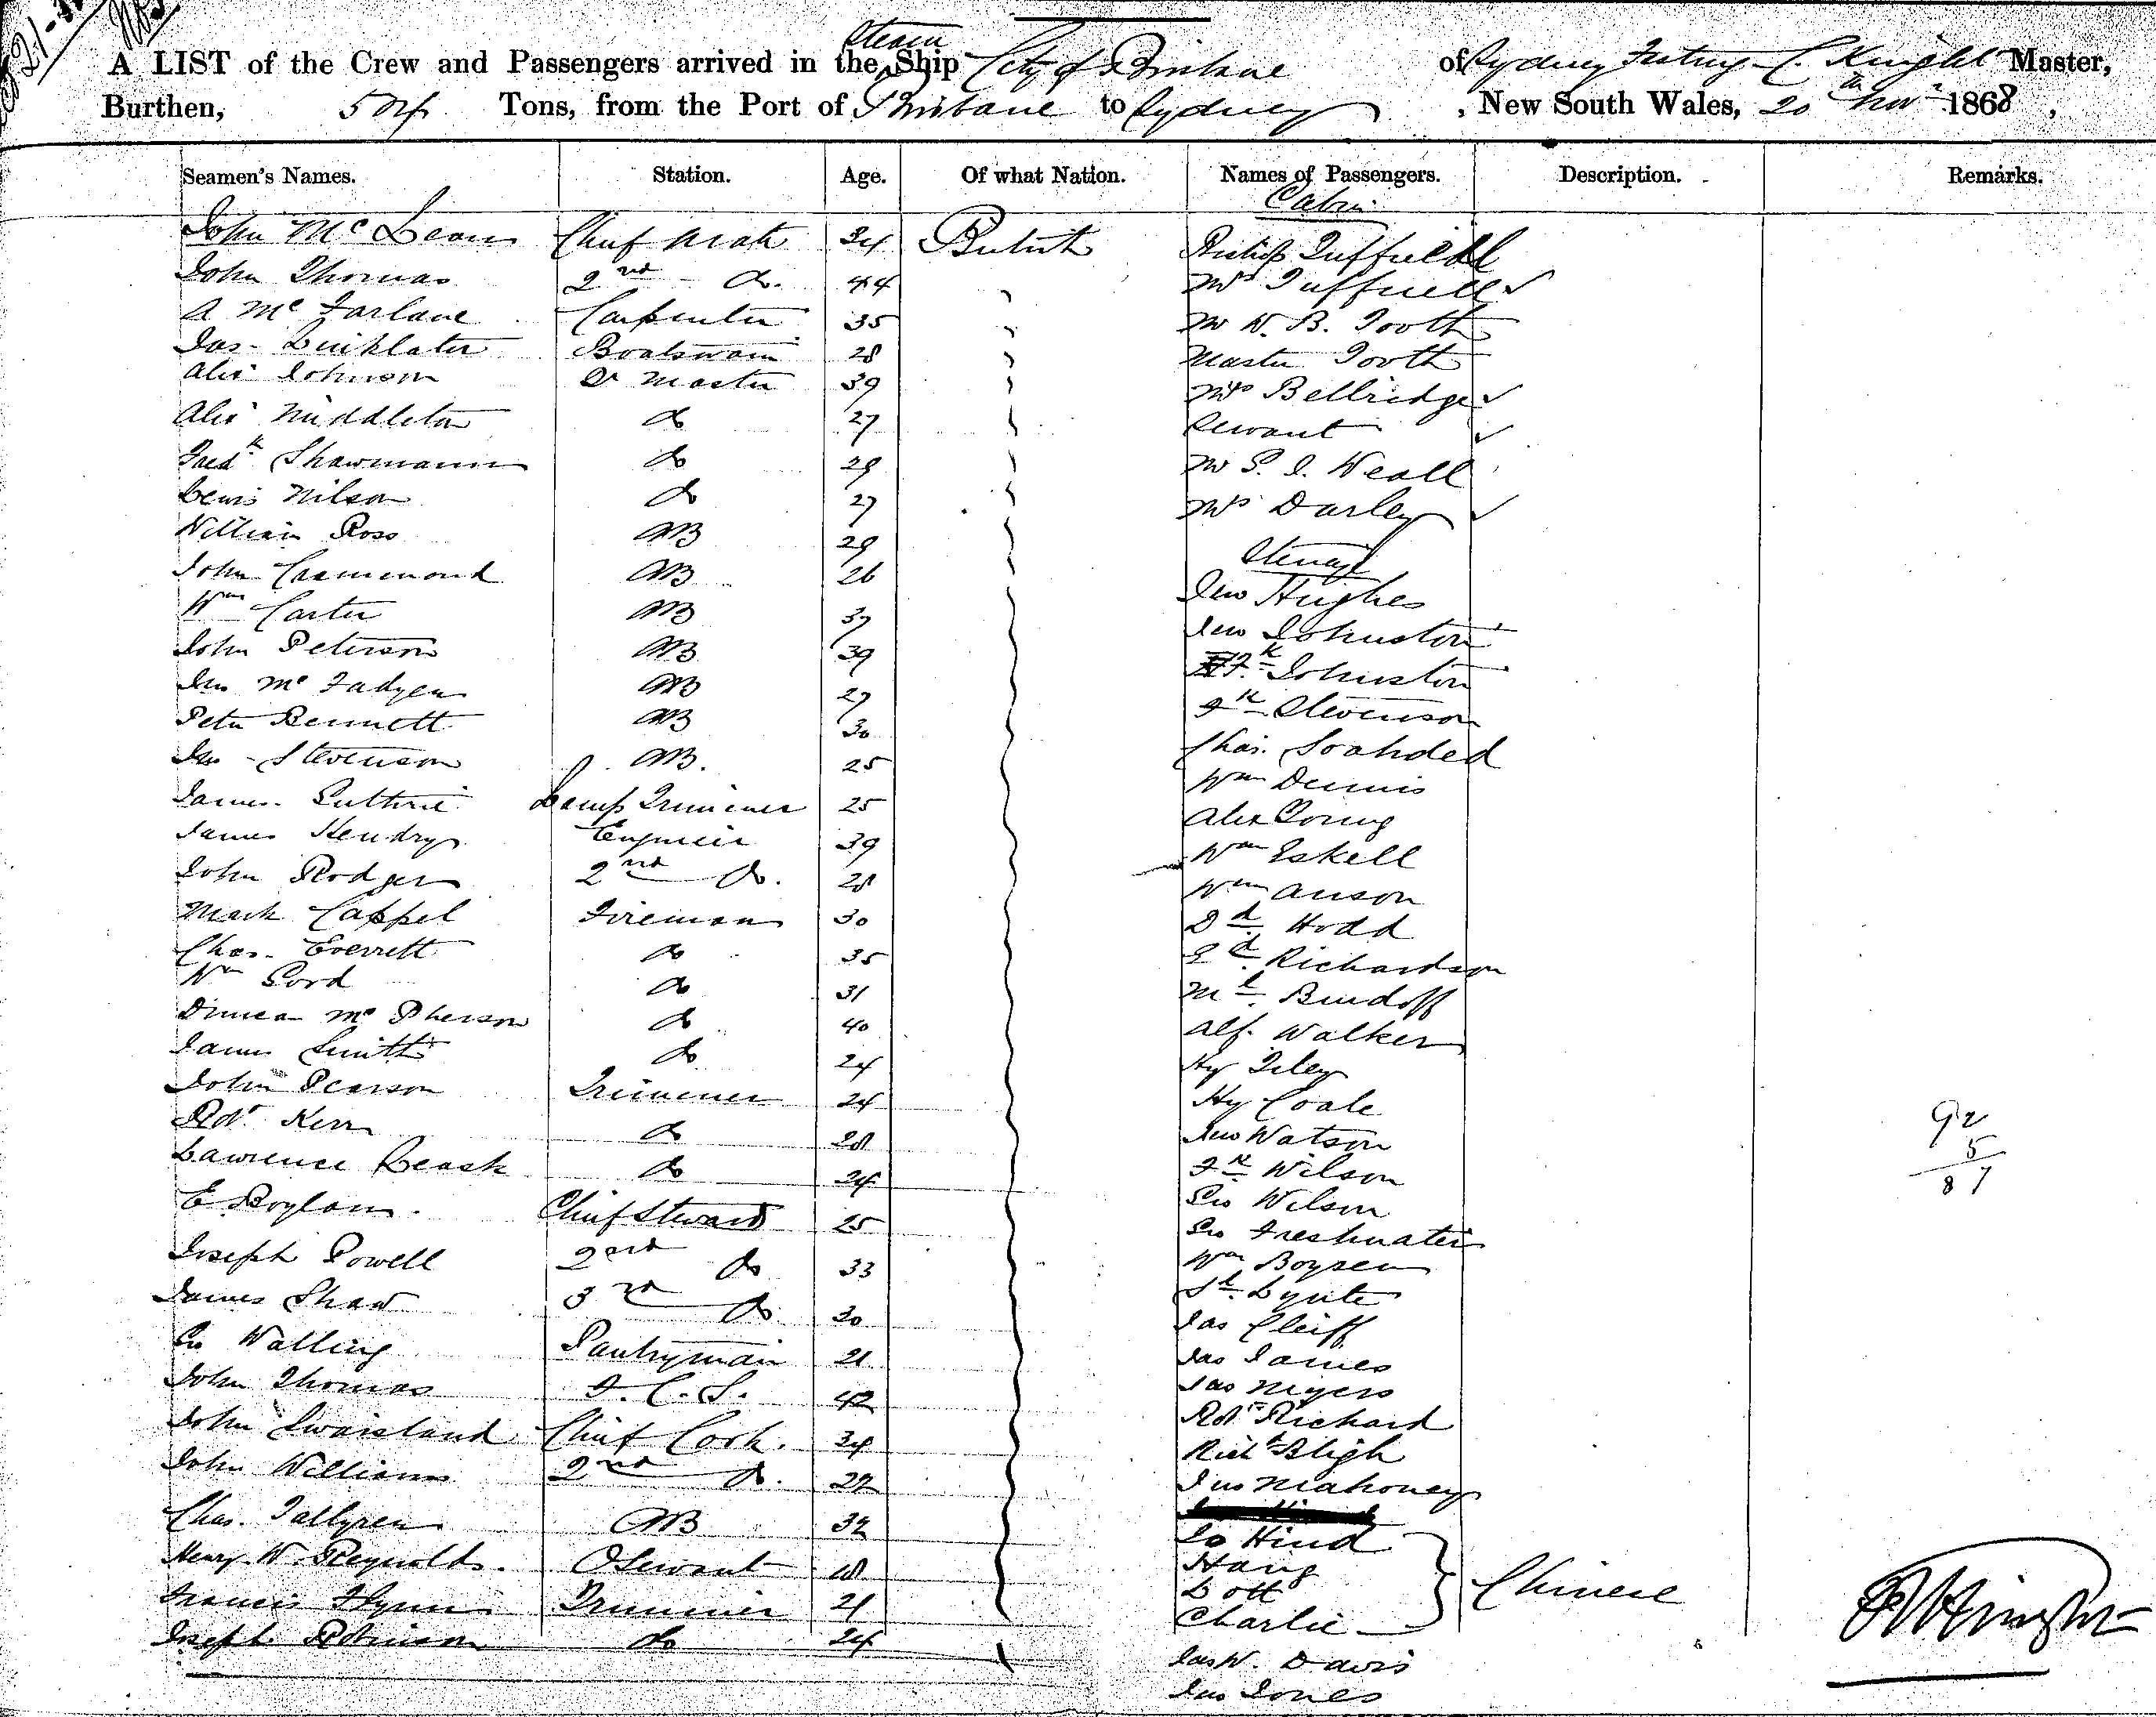 Steam
A LIST of the Crew and Passengers arrived in the Ship City of Brisbane of Sydney C. Knight Master,
Burthen, 504 Tons, from the Port of Brisbane to Sydney, New South Wales, 20th Novr 1868,
Seamen's Names. Station. Age. Of what Nation. Names of Passengers. Description. Remarks.
Cabin
John McLean Chief Mate 34 British Bishop Tuffnell
John Thomas 2nd do. 44 Mrs Tuffnell
A McFarlane Carpenter 35 Mr W. B. Tooth
Jas. Linklater Boatswain 28 Master Tooth
Alex Johnson Qr Master 39 Mrs Bellridge
Alex Middleton do 27 Servant
Fredk Shawmann do 29 Mr S. J. Weall
Lewis Nilson do 27 Mrs Darley
William Ross AB 29 Steerage
John Crammond AB 26 Jno Hughes
Wm Carter AB 37 Jno Johnston
John Peterson AB 39 Fk Johnston
Jno McFadyen AB 27 Fk Stevenson
Peter Bennett AB 30 Chas.
Jno Stevenson AB. 25 Wm Dennis
James Guthrie Lamp Trimmer 25 Alex Young
James Hendry Engineer 39 Wm Eskell
John Rodger 2nd do. 28 Wm Anson
Mark Cappel Fireman 30 Dd Hodd
Chas. Everett do 35 Ed Richardson
Wm Lord do 31 Ml Bindoff
Duncan McPherson do 40 Alf. Walker
James Smith do 24 Hy Tiley
John Pearson Trimmer 24 Hy Coale
Robt Kerr do 28 Jno Watson
Lawrence Leask do 24 Fk Wilson
E Boylan. Chief Steward 25 Geo Wilson
Geo Freshwater
Joseph Powell 2nd do 33 Wm Boysen
James Shaw 3rd do 30
Jas Cleiff
Geo Walling Pantryman 21 Jas James
John Thomas F. C. S. 42 Jas Myers
Robt Richard
John Swaisland Chief Cook. 34 Richd Bligh
John Williams 2nd do. 22 Jno Mahoney
Chas. Tallyren AB 32 Jo Hind
Henry W. Reynolds. O Servant 18 Hang
Lott
Chinese
Francis Flynn Trimmer 21 Charlie
Joseph Robinson do 24 Jas W. Davis
Jno Jones
92
5
87